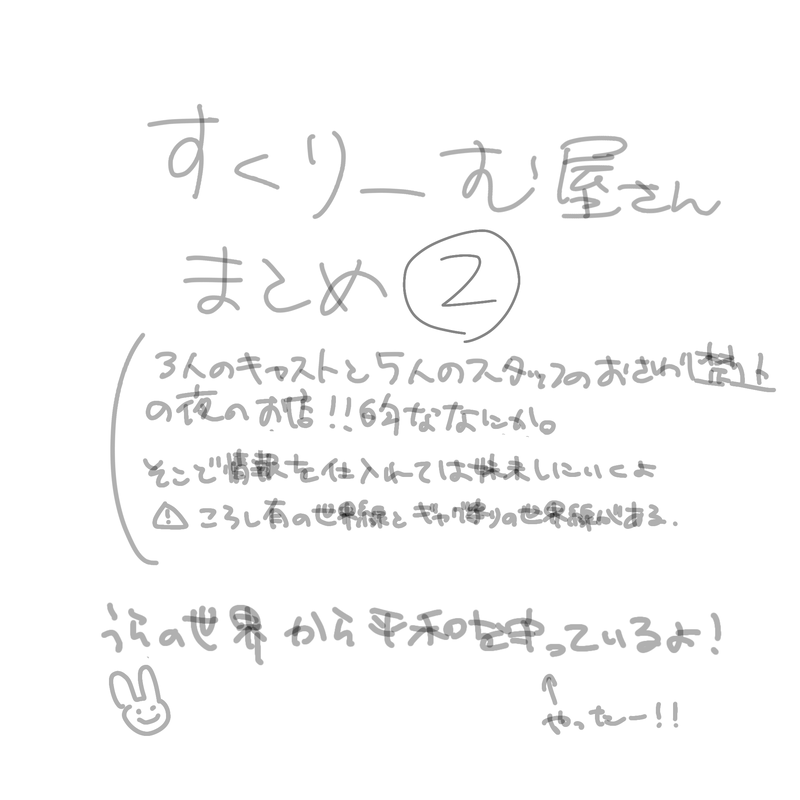 すくりーむ屋さん
まとめ②
3人のキャストと5人のスタッフのおさわり禁止
の夜のお店!!的ななにか。
そこで情報を仕入れては抹消しにいくよ
⚠ころし有の世界線とギャグ寄りの世界線がある.
うらの世界から平和を守っているよ!
↑
やったー!!